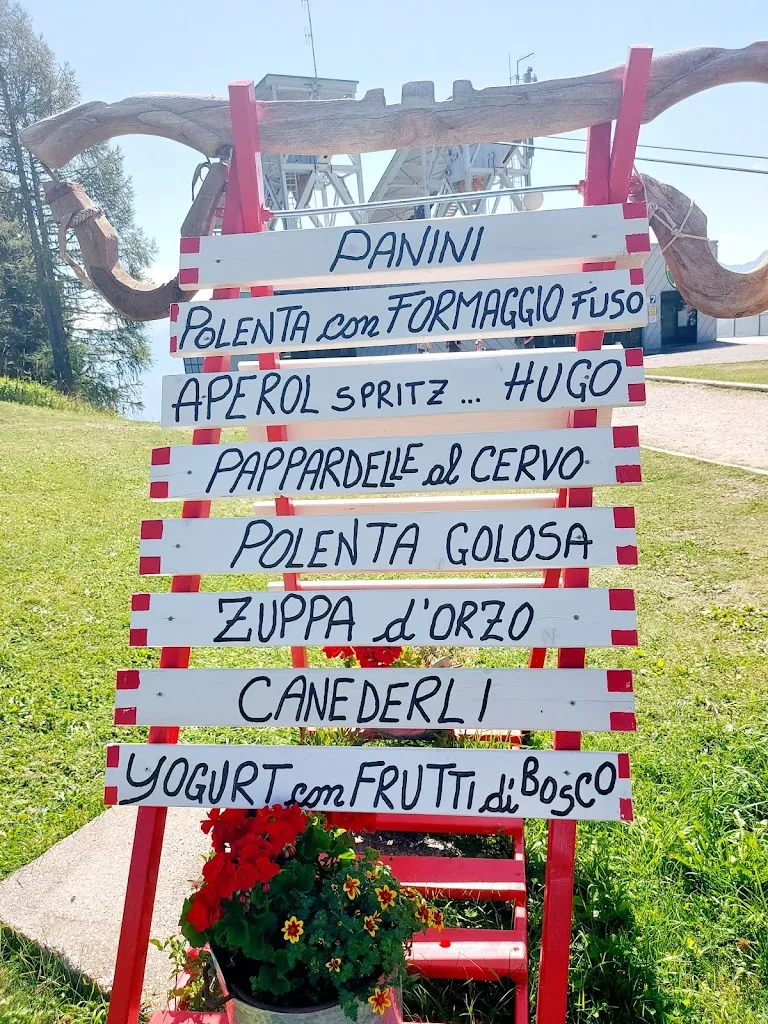 PANINI
POLENTA con FORMAGGIO FUSO
APEROL SPRITZ ... HUGO
PAPPARDELLE al CERVO
POLENTA GOLOSA
ZUPPA d'ORZO
CANEDERLI
YOGURT con FRUTTI di BOSCO